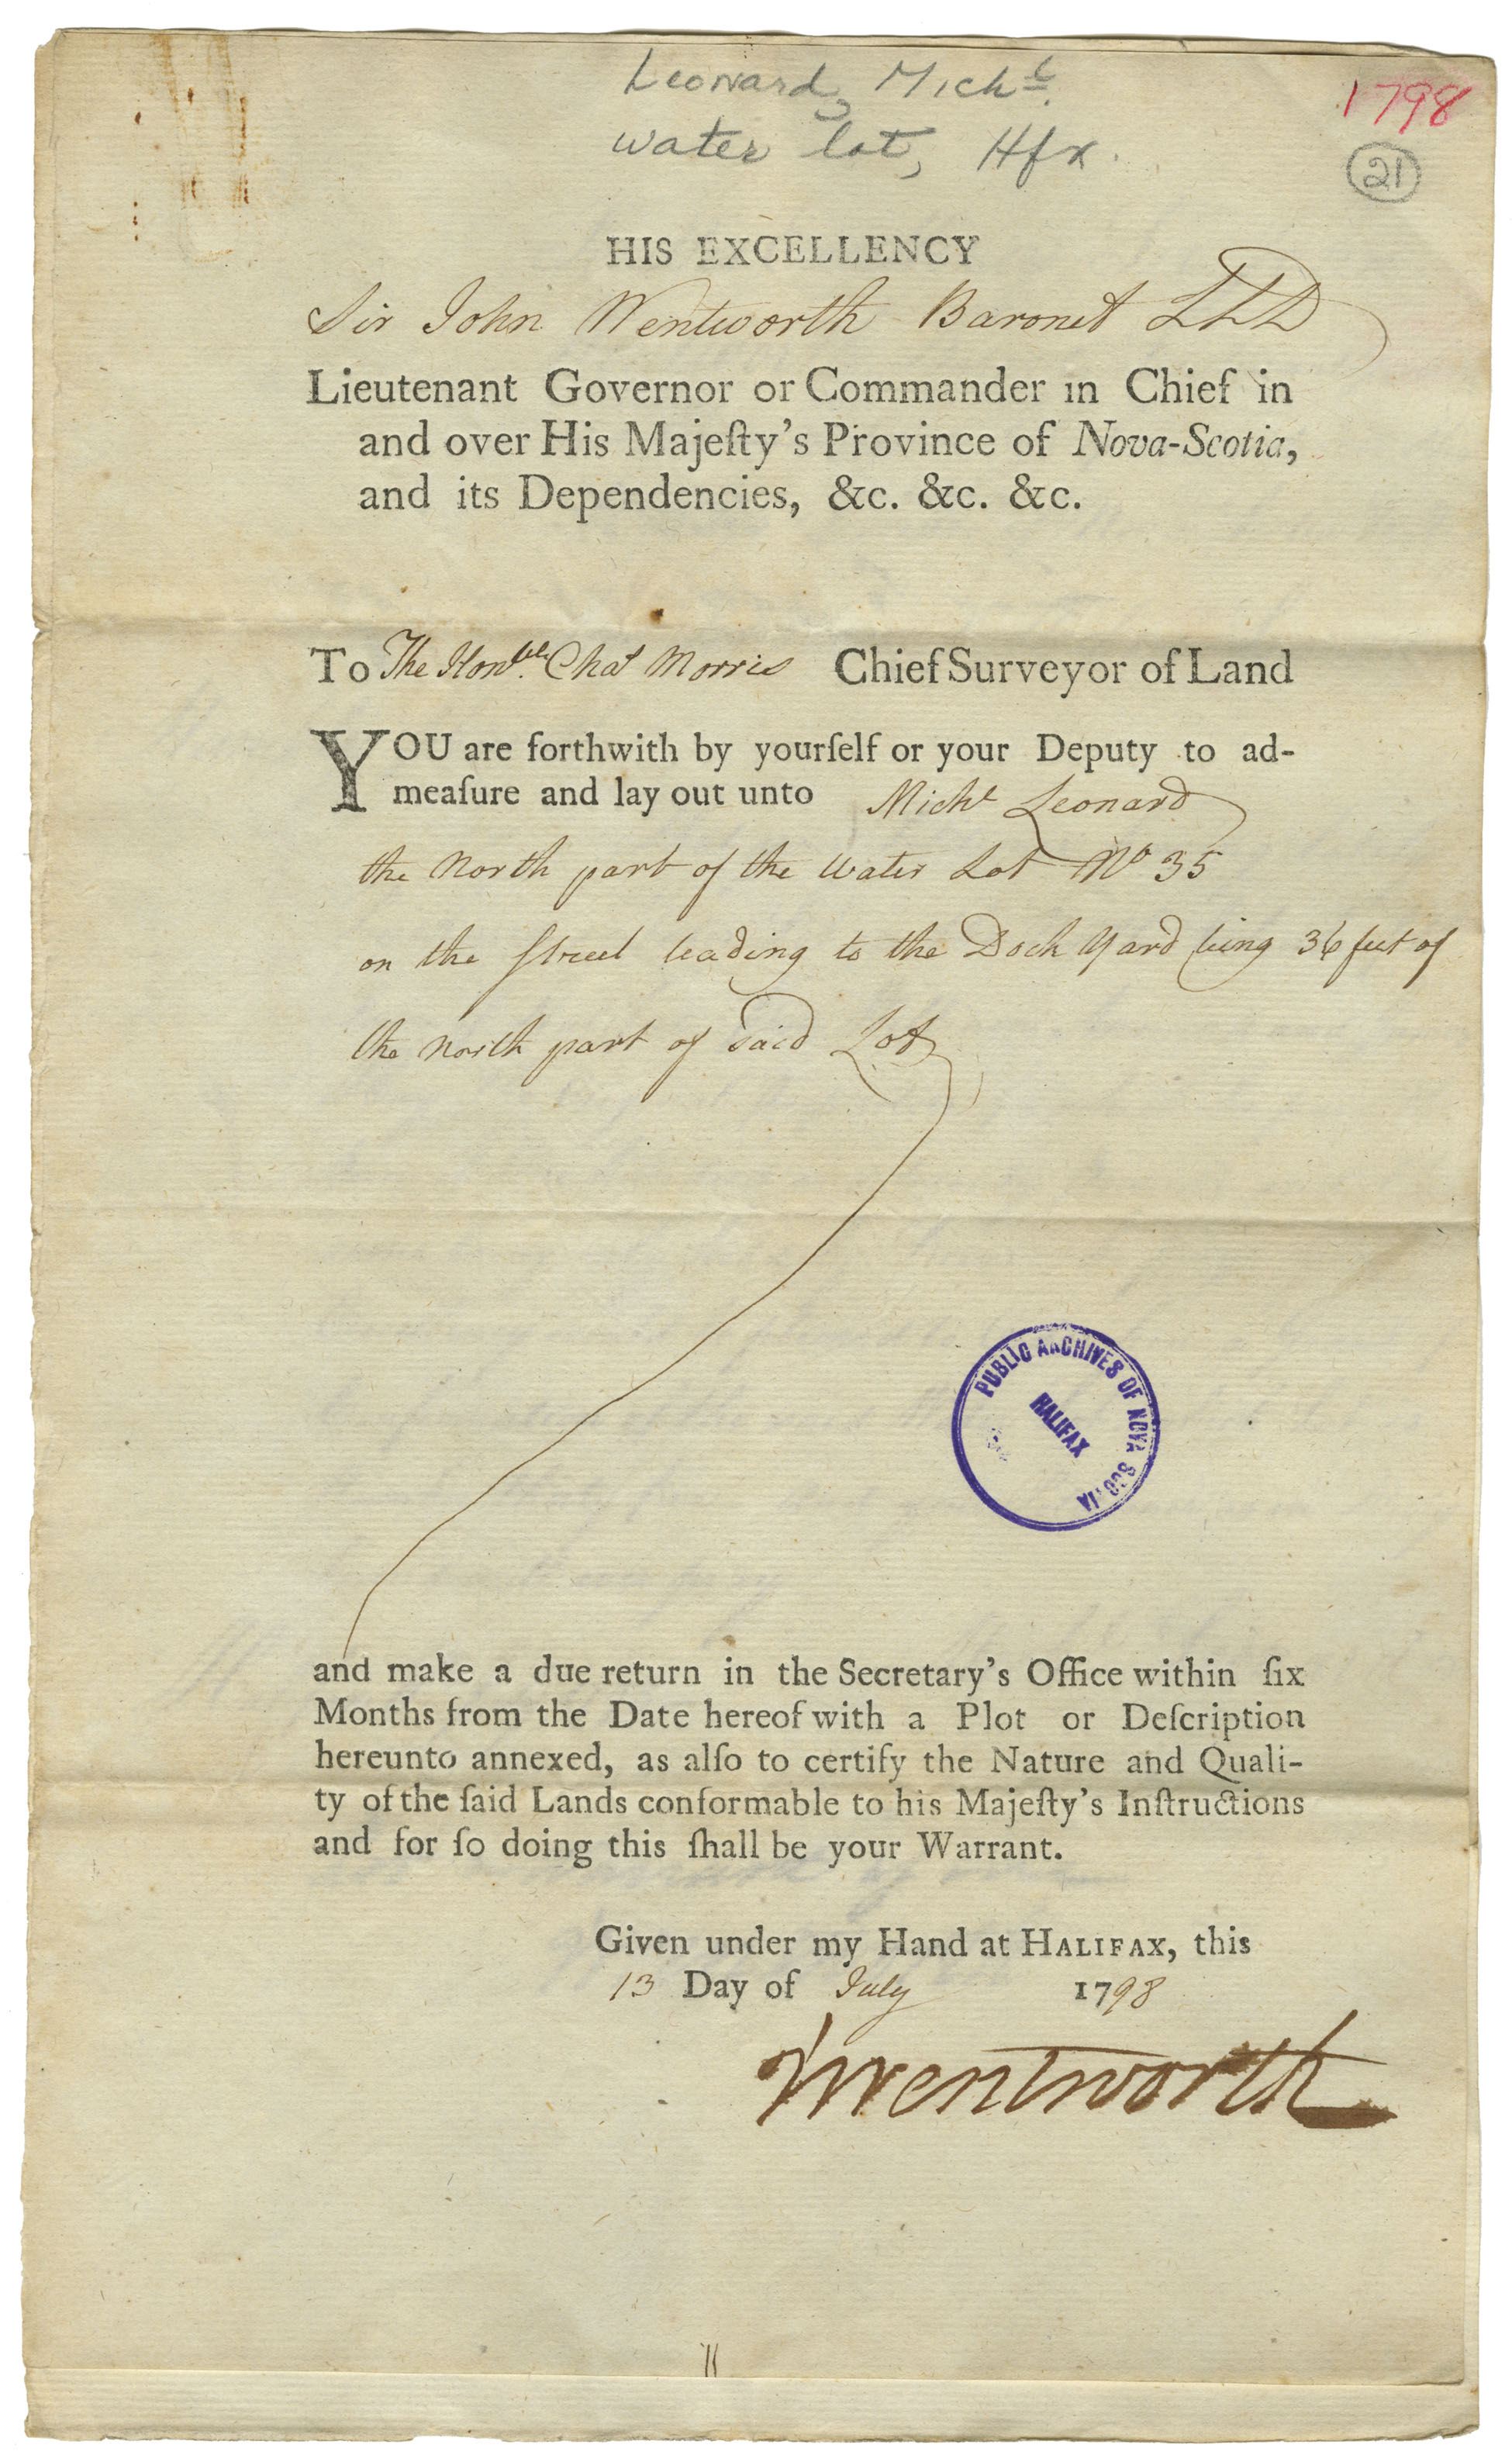 Leonard, Michl.
water lot, Hfx.
1798
21
HIS EXCELLENCY
Sir John Wentworth Baronet LLD
Lieutenant Governor or Commander in Chief in
and over His Majeſty's Province of Nova-Scotia,
and its Dependencies, &c. &c. &c.
To The Honble. Chas Morris Chief Surveyor of Land
YOU are forthwith by yourſelf or your Deputy to ad-
meaſure and lay out unto Michl Leonard
the North part of the Water Lot No 35
on the Street leading to the Dock Yard being 36 feet of
the north part of said Lot
PUBLIC ARCHIVES OF NOVA SCOTIA
HALIFAX
and make a due return in the Secretary's Office within ſix
Months from the Date hereof with a Plot or Deſcription
hereunto annexed, as alſo to certify the Nature and Quali-
ty of the ſaid Lands conformable to his Majeſty's Inſtructions
and for ſo doing this ſhall be your Warrant.
Given under my Hand at HALIFAX, this
13 Day of July 1798
JWentworth